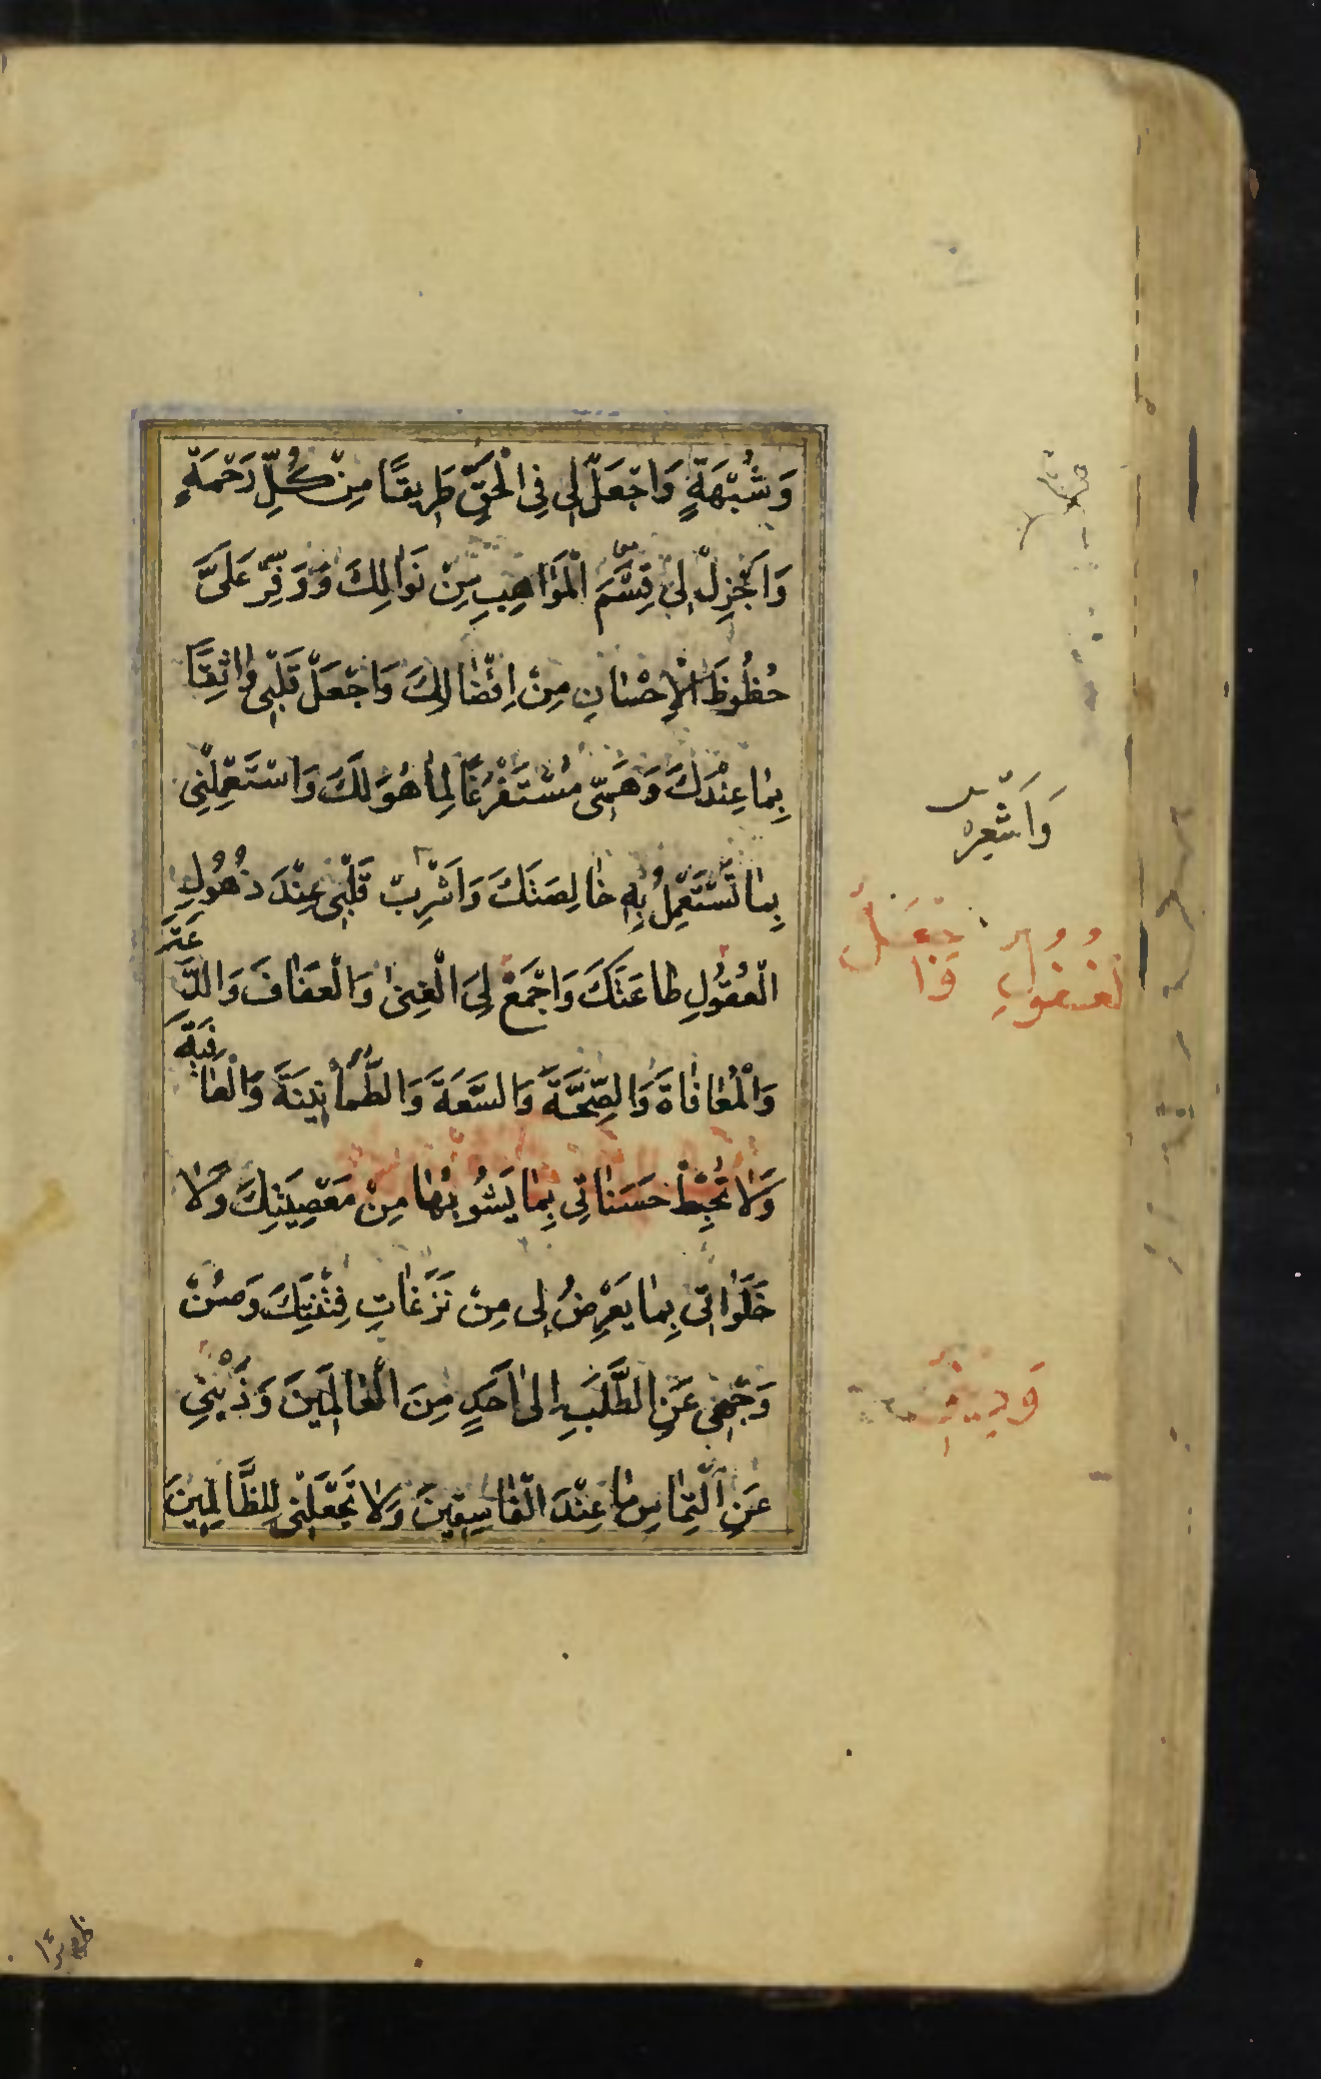 وَشُبْهَةٍ وَاجْعَلْ لِی فِی الْحَقِّ طَرِیقًا مِنْ كُلِّ رَحْمَةٍ
وَاَجْزِلْ لِی قِسَمَ الْمَوَاهِبِ مِنْ نَوَالِكَ وَوَفِّرْ عَلَیَّ
حُظُوظَ الْاِحْسَانِ مِنْ اِفْضَالِكَ وَاجْعَلْ قَلْبِی وَاثِقًا
بِمَا عِنْدَكَ وَهَمِّی مُسْتَفْرَغًا لِمَا هُوَ لَكَ وَاسْتَعْمِلْنِی
بِمَا تَسْتَعْمِلُ بِهِ خَالِصَتَكَ وَاَشْرِبْ قَلْبِی عِنْدَ ذُهُولِ
الْعُقُولِ طَاعَتَكَ وَاجْمَعْ لِیَ الْغِنٰی وَالْعَفَافَ وَالدَّعَةَ
وَالْمُعَافَاةَ وَالصِّحَّةَ وَالسَّعَةَ وَالطُّمَاْنِینَةَ وَالْعَافِیَةَ
وَلَا تُحْبِطْ حَسَنَاتِی بِمَا یَشُوبُهَا مِنْ مَعْصِیَتِكَ وَلَا
خَلَوَاتِی بِمَا یَعْرِضُ لِی مِنْ نَزَغَاتِ فِتْنَتِكَ وَصُنْ
وَجْهِی عَنِ الطَّلَبِ اِلٰی اَحَدٍ مِنَ الْعَالَمِینَ وَذُبَّنِی
عَنِ الْتِمَاسِ مَا عِنْدَ الْفَاسِقِینَ وَلَا تَجْعَلْنِی لِلظَّالِمِینَ
وَاَشْعِرْهُ
ظهیرًا